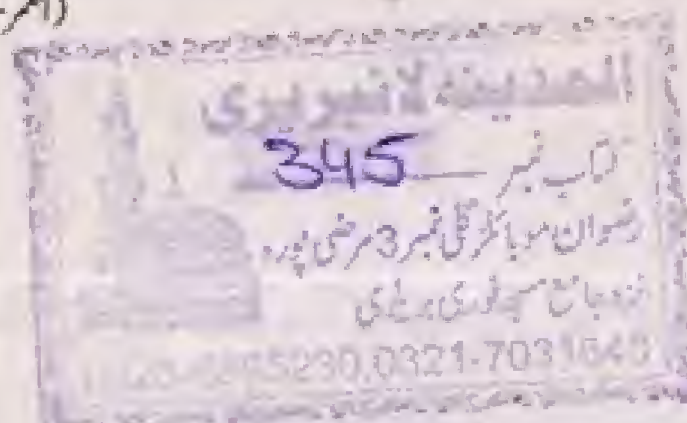 المدینہ لائبریری
کتاب نمبر 345
رضوان موبائلز گلی نمبر 3 مرضی پورہ
نزد جامع مسجد نوری بریلوی
0321-7031640